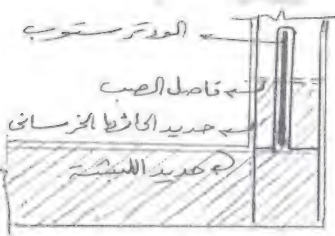 الووترستوب
فاصل الصب
حديد الحائط الخرسانى
حديد اللبشة